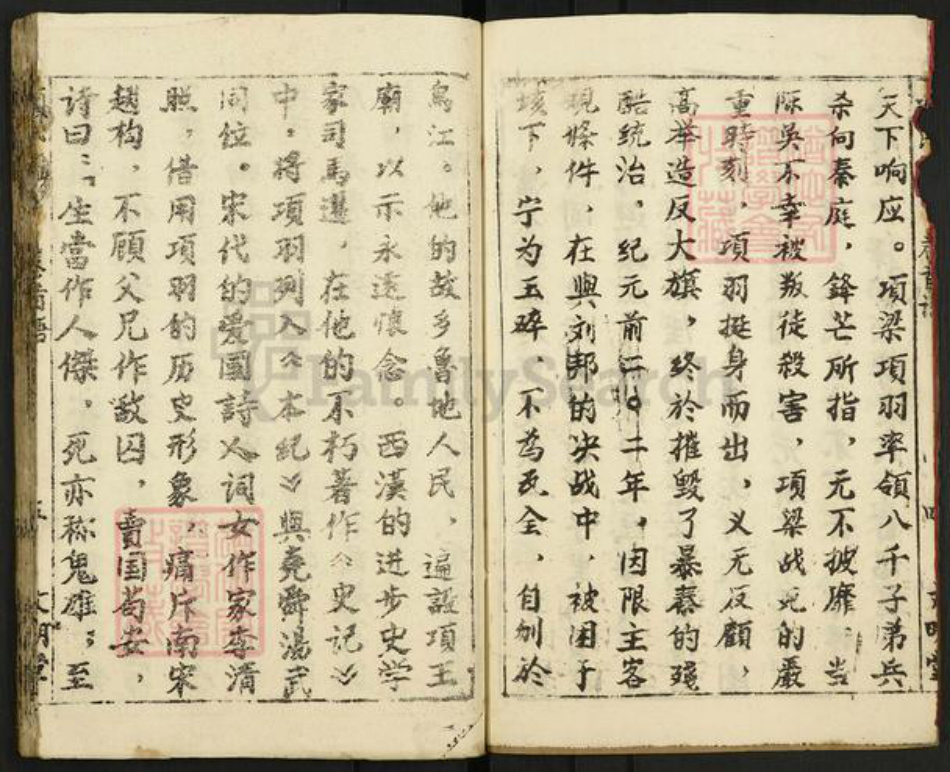 天下响应。項梁項羽率领八千子弟兵
杀向秦庭，鋒芒所指，元不披靡。当
陈吴不幸被叛徒殺害，項梁战死的嚴
重時刻，項羽挺身而出，义无反顧，
高举造反大旗，终於摧毁了暴秦的殘
酷统治。纪元前二〇二年，因限主客
現條件，在與刘邦的决战中，被困于
垓下，宁为玉碎、不為瓦全，自刎於
烏江。他的故乡魯地人民，遍設項王
廟，以示永遠懷念。西漢的进步史学
家司馬遷，在他的不朽著作《史记》
中，将項羽列入《本紀》與堯舜湯武
同位。宋代的爱國詩人詞女作家李清
照，借用項羽的历史形象，痛斥南宋
趙构，不顾父兄作敌囚，賣国苟安，
诗曰：「生當作人傑，死亦称鬼雄；至
卷首語
文明堂
FamilySearch